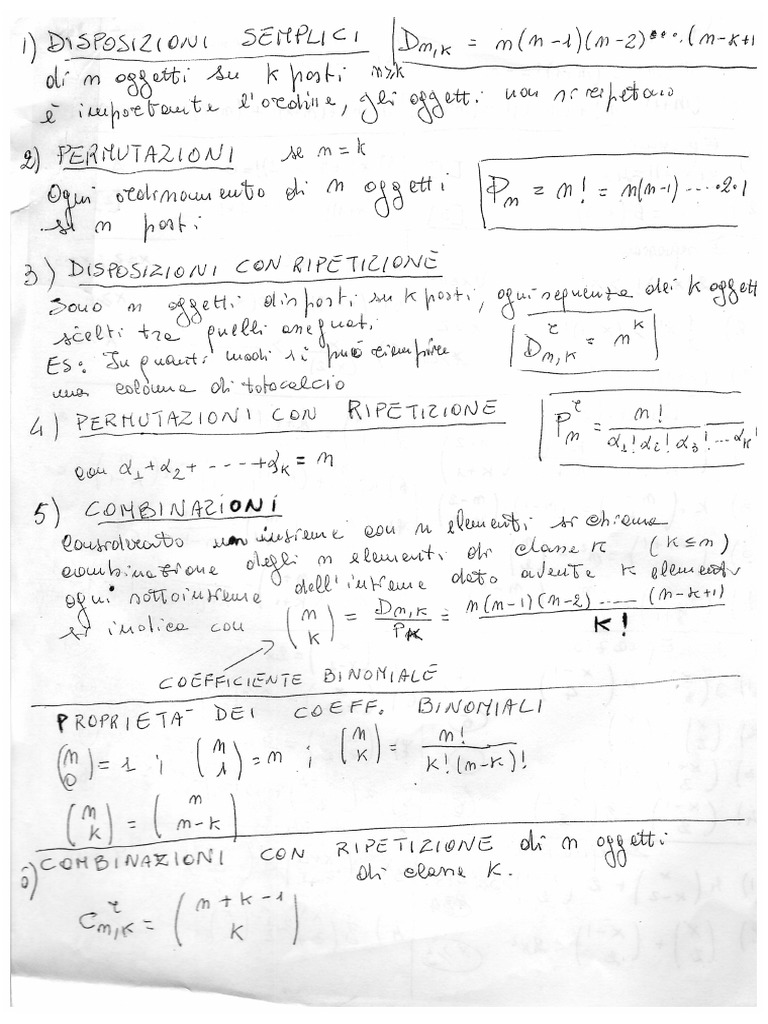 1) DISPOSIZIONI SEMPLICI D_{n,k} = n(n-1)(n-2)....(n-k+1
di n oggetti su k posti n≥k
è importante l'ordine, gli oggetti non si ripetono
2) PERMUTAZIONI se n=k
Ogni ordinamento di n oggetti P_n = n! = n(n-1)....2.1
su n posti
3) DISPOSIZIONI CON RIPETIZIONE
Sono n oggetti disposti su k posti, ogni sequenza dei k oggett
scelti tra quelli assegnati D^r_{n,k} = n^k
Es: In quanti modi si può riempire
una colonna di totocalcio
4) PERMUTAZIONI CON RIPETIZIONE P^r_n = n! / α_1! α_2! α_3! ... α_k!
con α_1+α_2+ ---- +α_k = n
5) COMBINAZIONI
Considerato un insieme con n elementi si chiama
combinazione degli n elementi di classe k (k≤n)
ogni sottoinsieme dell'insieme dato avente k elementi
si indica con (n k) = D_{n,k} / P_k = n(n-1)(n-2)......(n-k+1) / k!
COEFFICIENTE BINOMIALE
PROPRIETA' DEI COEFF. BINOMIALI
(n 0) = 1 ; (n 1) = n ; (n k) = n! / k!(n-k)!
(n k) = (n n-k)
6) COMBINAZIONI CON RIPETIZIONE di n oggetti
di classe k.
C^r_{n,k} = (n+k-1 k)